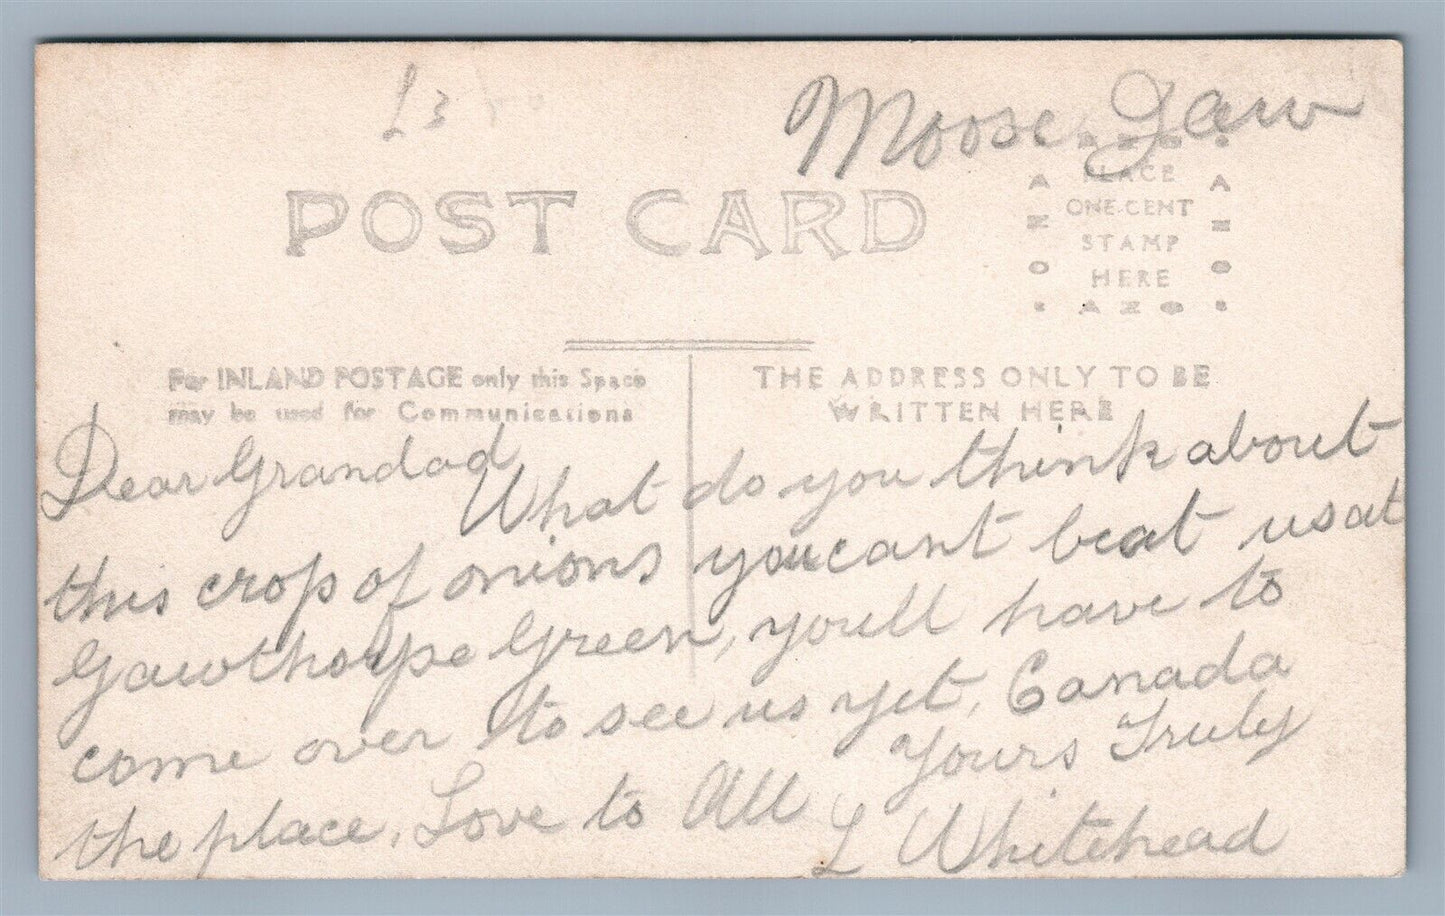 £3
Moose Jaw
POST CARD
AZO
PLACE
ONE CENT
STAMP
HERE
AZO
For INLAND POSTAGE only this Space
may be used for Communications
THE ADDRESS ONLY TO BE
WRITTEN HERE
Dear Grandad
What do you think about
this crop of onions you cant beat us at
Gawthorpe Green, youll have to
come over to see us yet, Canada
the place. Love to All Yours Truly
L Whitehead